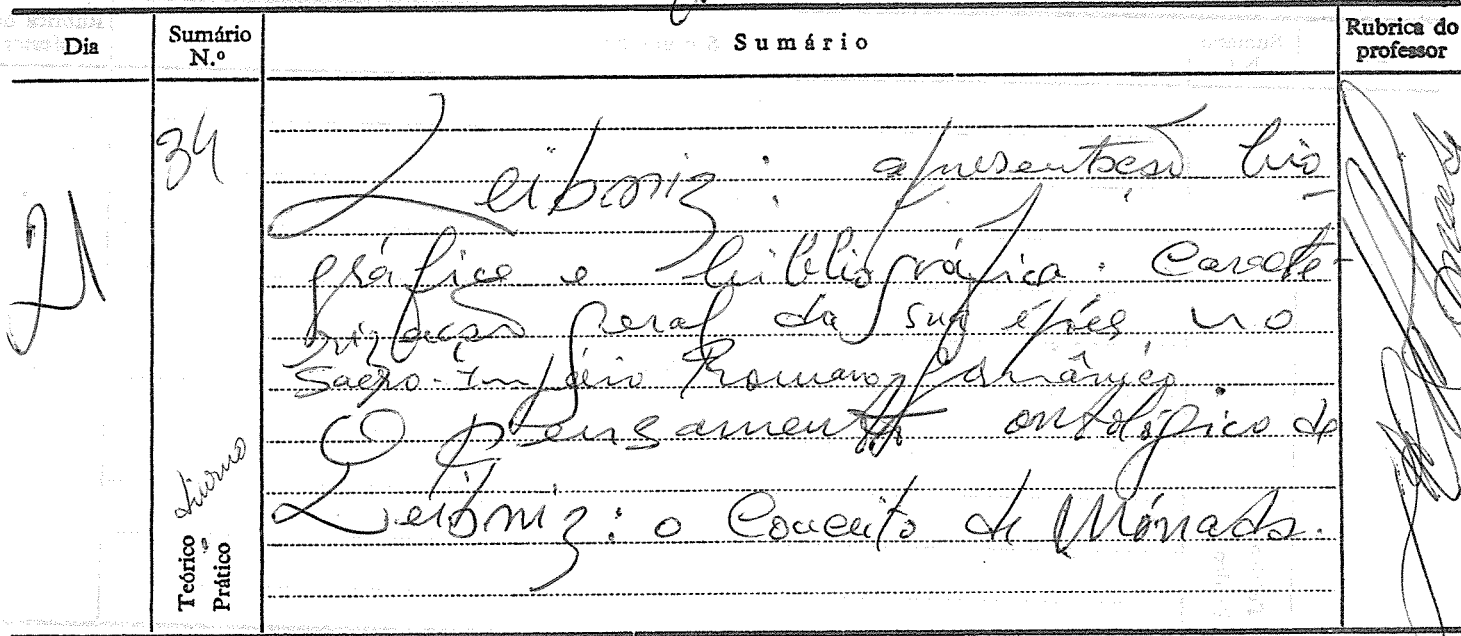 Dia
Sumário N.º
Sumário
Rubrica do professor
21
34
Leibniz: apresentação bio-
gráfica e bibliográfica. Caracte-
rização geral da sua época no
Sacro-Império Romano Germânico.
O pensamento ontológico de
Leibniz: o Conceito de Mónada.
diurno
Teórico
Prático